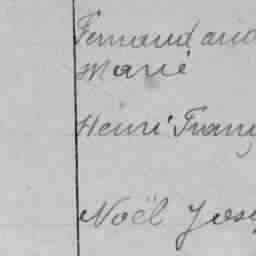 Fernand and
Marie
Henri Franç
Noël Jos